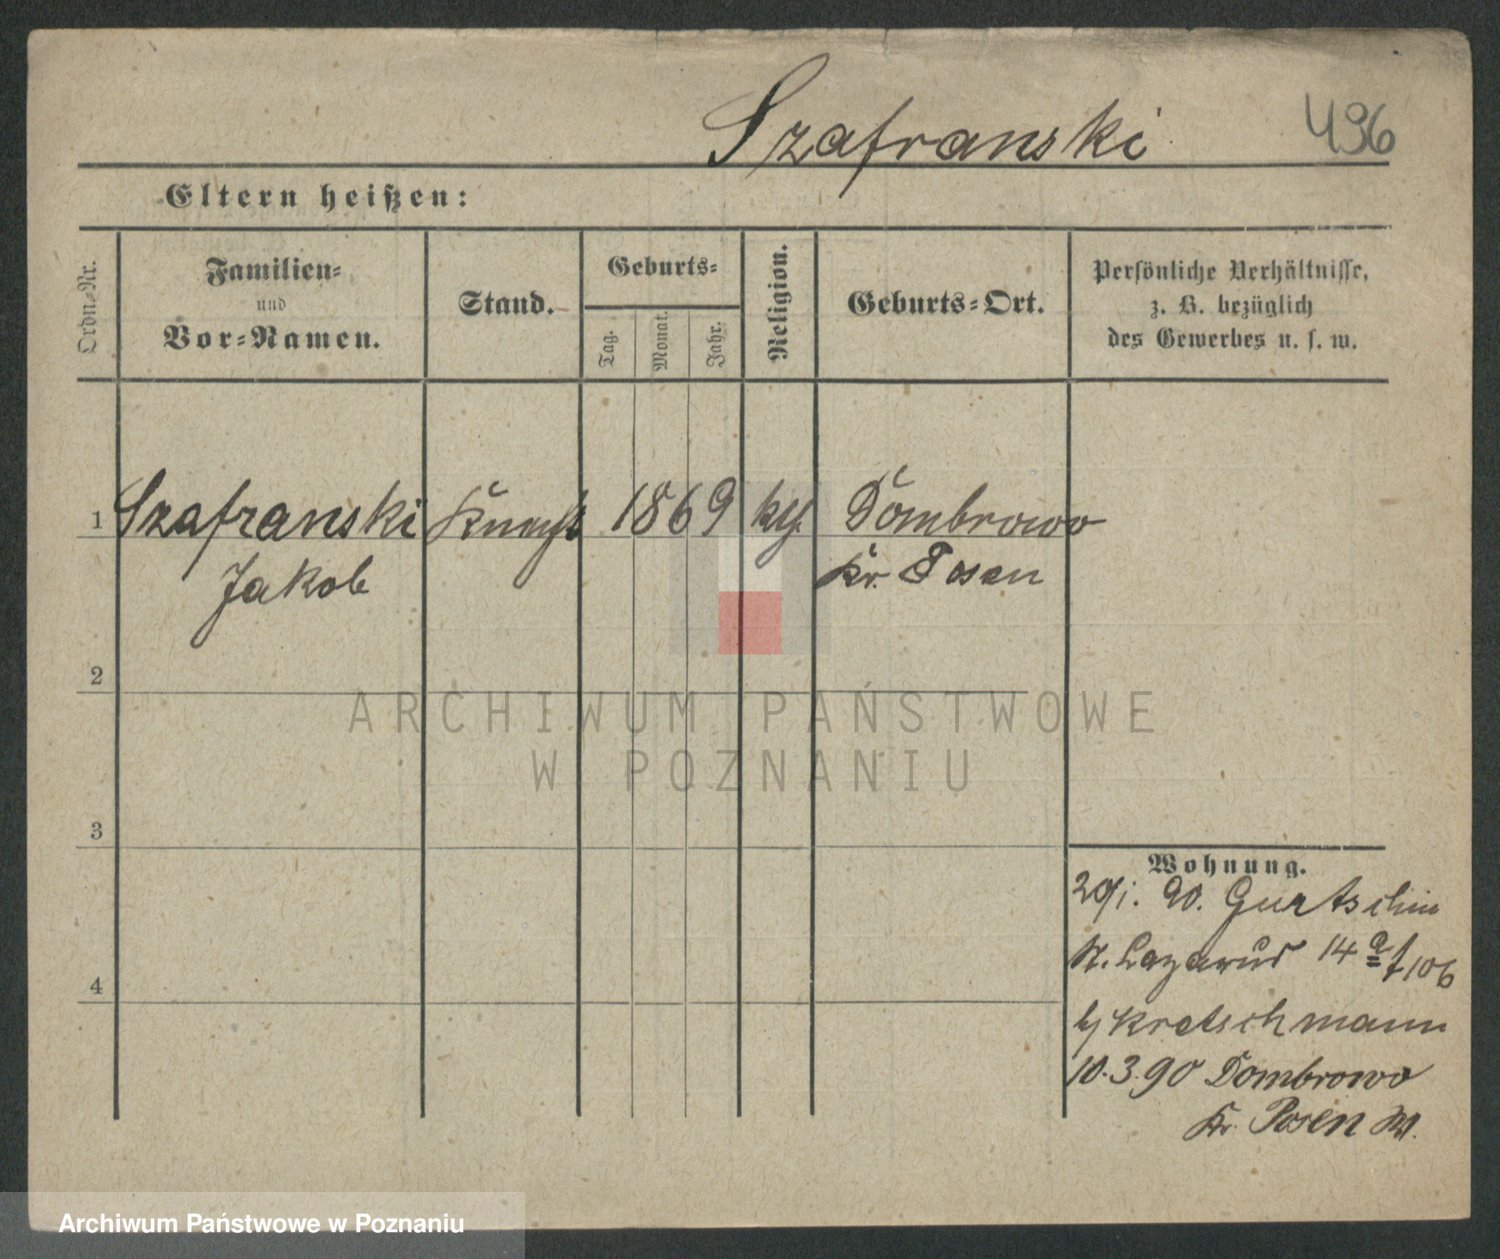 Szafranski 496
Eltern heißen:
Ordn-Nr.
Familien-
und
Vor-Namen.
Stand.
Geburts-
Tag.
Monat.
Jahr.
Religion.
Geburts-Ort.
Persönliche Verhältnisse,
z. B. bezüglich
des Gewerbes u. s. w.
1 Szafranski Knecht 1869 kth. Dombrowo
Jakob Kr. Posen
2
3
4
Wohnung.
90. Gurtschin
St. Lazarus 14 a 106
b/ Kretschmann
10.3.90 Dombrowo
Kr. Posen W.
ARCHIWUM PAŃSTWOWE
W POZNANIU
Archiwum Państwowe w Poznaniu